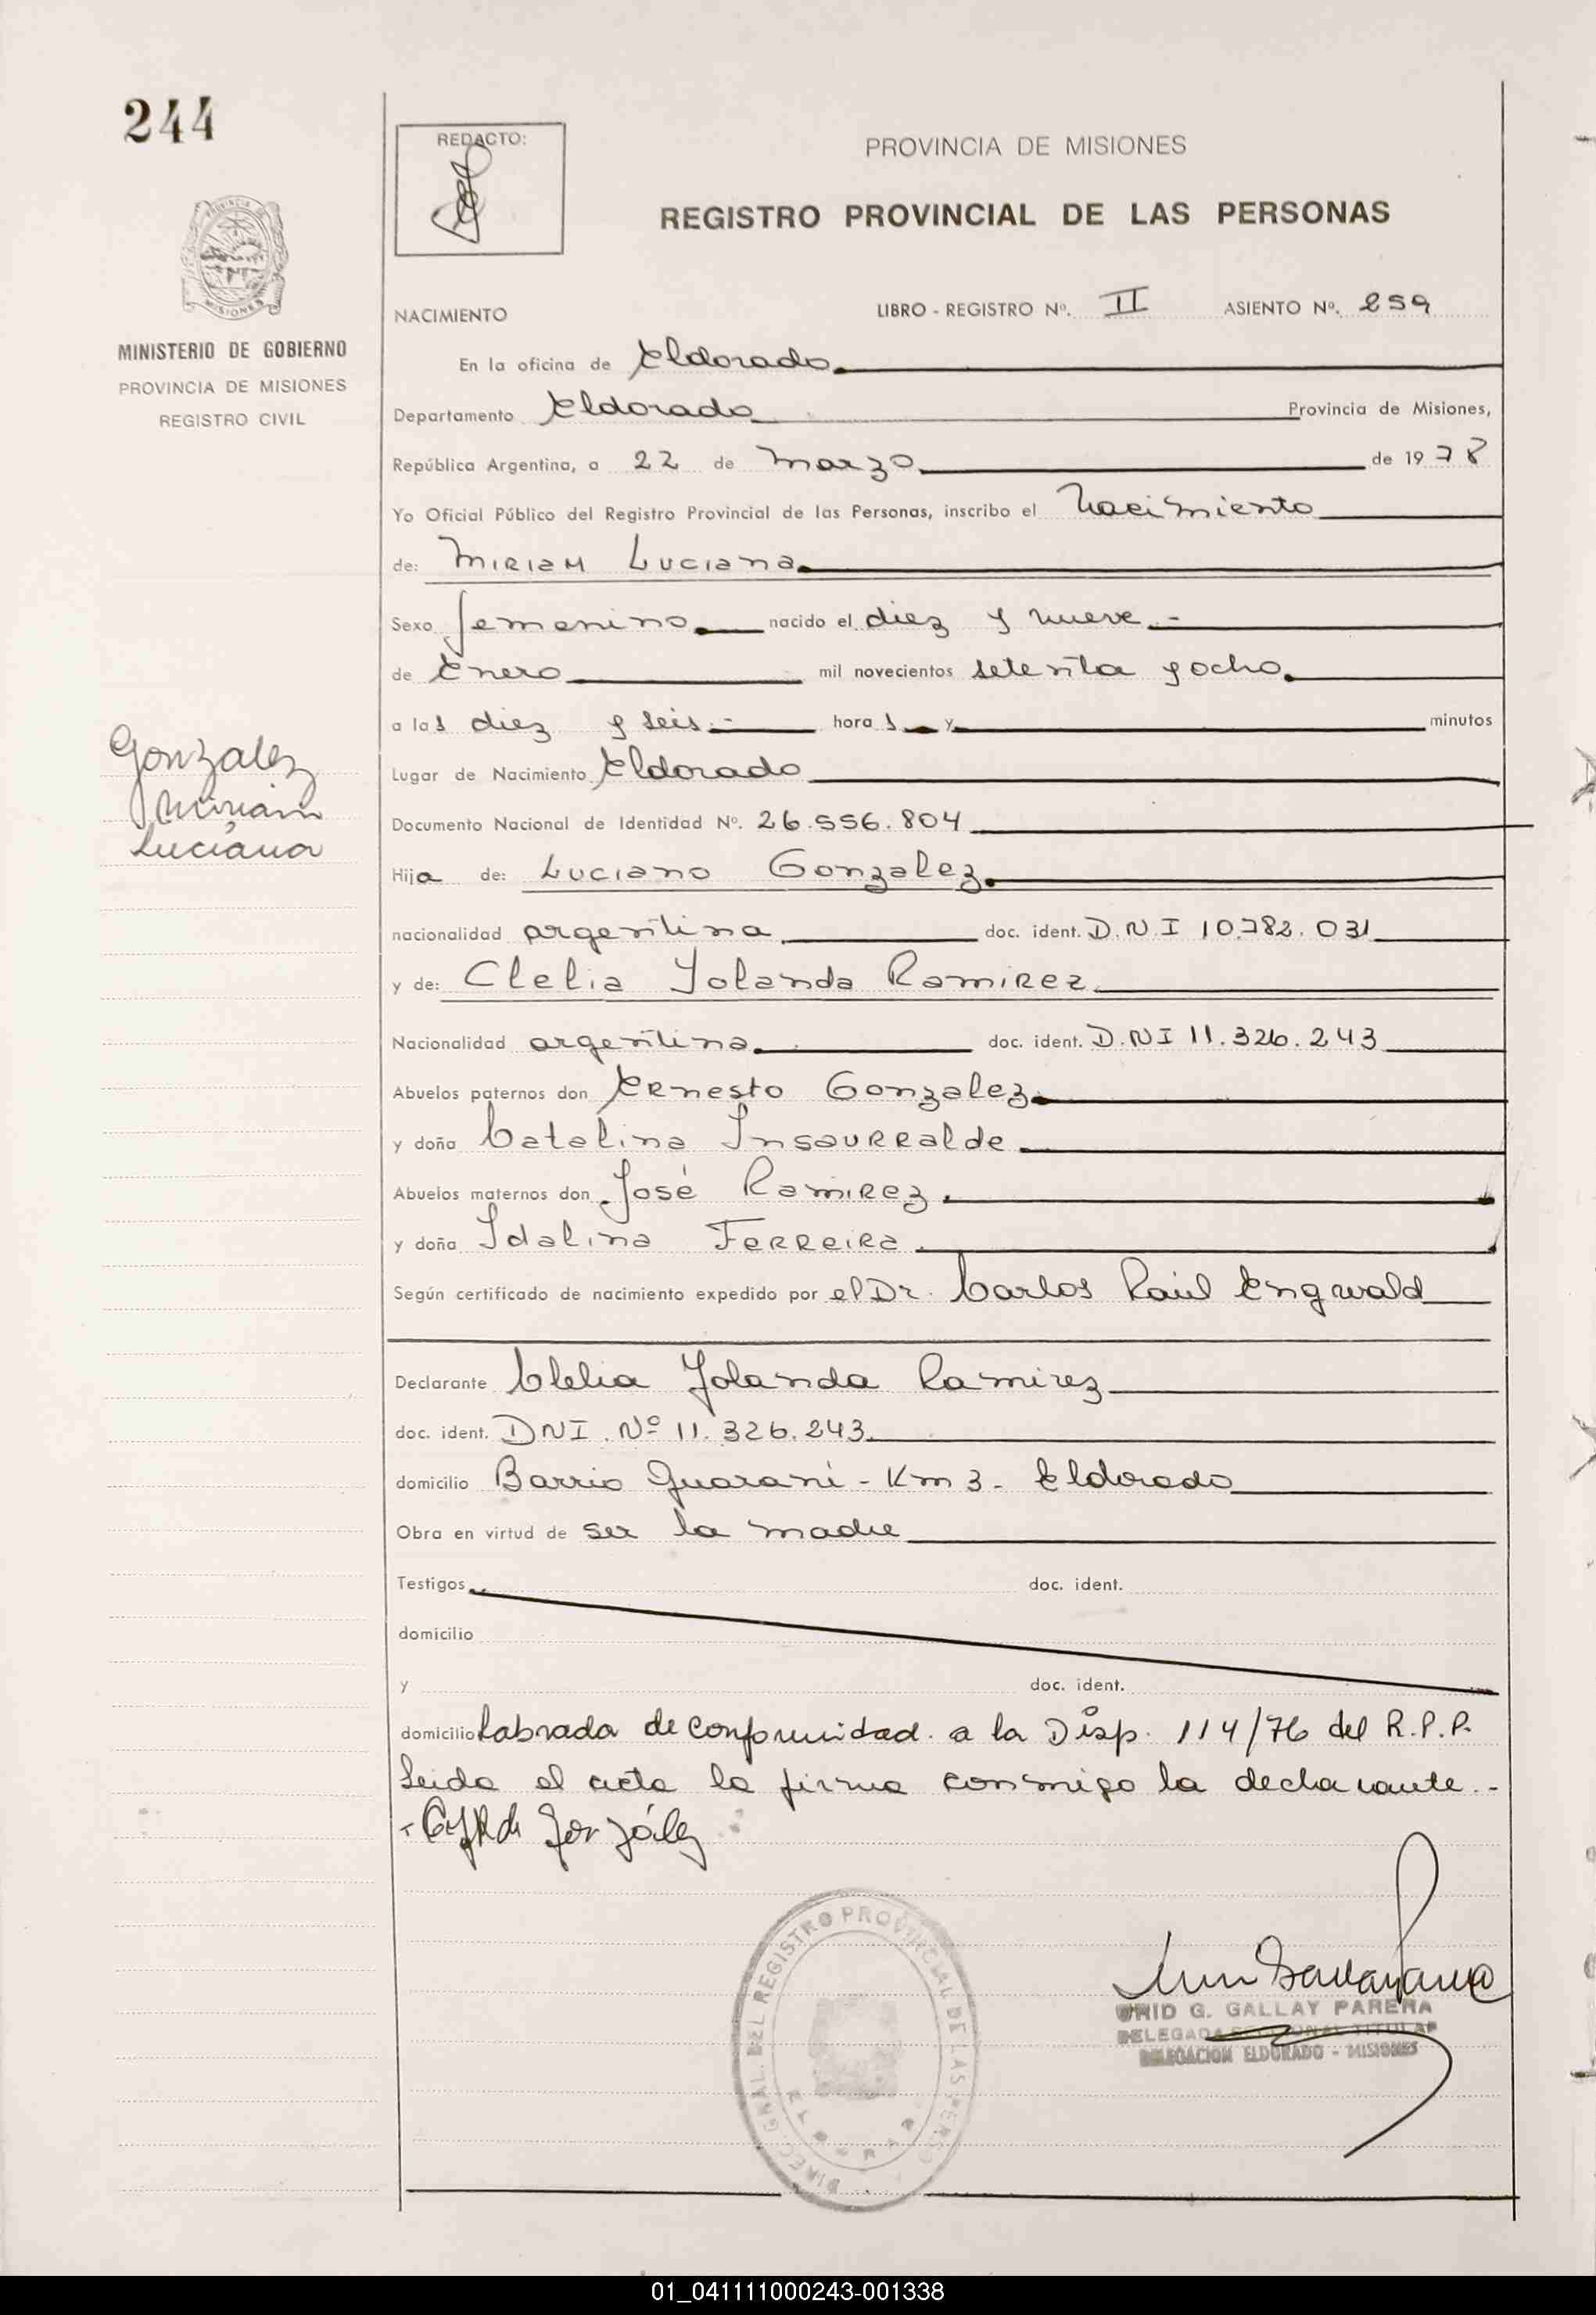 244
REDACTO:
PROVINCIA DE MISIONES
REGISTRO PROVINCIAL DE LAS PERSONAS
PROVINCIA DE
MISIONES
MINISTERIO DE GOBIERNO
PROVINCIA DE MISIONES
REGISTRO CIVIL
NACIMIENTO LIBRO - REGISTRO Nº. II ASIENTO Nº. 259
En la oficina de Eldorado
Departamento Eldorado Provincia de Misiones,
República Argentina, a 22 de Marzo de 1978
Yo Oficial Público del Registro Provincial de las Personas, inscribo el Nacimiento
de: Miriam Luciana
Sexo femenino nacido el diez y nueve.-
de Enero mil novecientos setenta y ocho
a las diez y seis.- horas y minutos
Lugar de Nacimiento Eldorado
Gonzalez
Miriam
Luciana
Documento Nacional de Identidad Nº. 26.556.804
Hija de: Luciano Gonzalez
nacionalidad argentina doc. ident. D.N.I 10.782.031
y de: Clelia Yolanda Ramirez
Nacionalidad argentina doc. ident. D.NI 11.326.243
Abuelos paternos don Ernesto Gonzalez
y doña Catalina Insaurralde
Abuelos maternos don José Ramirez
y doña Idalina Ferreira
Según certificado de nacimiento expedido por el Dr. Carlos Raúl Engwald
Declarante Clelia Yolanda Ramirez
doc. ident. DNI. Nº 11.326.243
domicilio Barrio Guaraní - Km 3 - Eldorado
Obra en virtud de ser la madre
Testigos doc. ident.
domicilio
y doc. ident.
domicilio Labrada de conformidad a la Disp. 114/76 del R.P.P.
Leida el acta la firma conmigo la declarante.-
González
DIREC. GRAL. DEL REGISTRO PROVINCIAL DE LAS PERSO
URID G. GALLAY PARERA
DELEGADA SECCIONAL TITULAR
DELEGACION ELDORADO - MISIONES
01_041111000243-001338